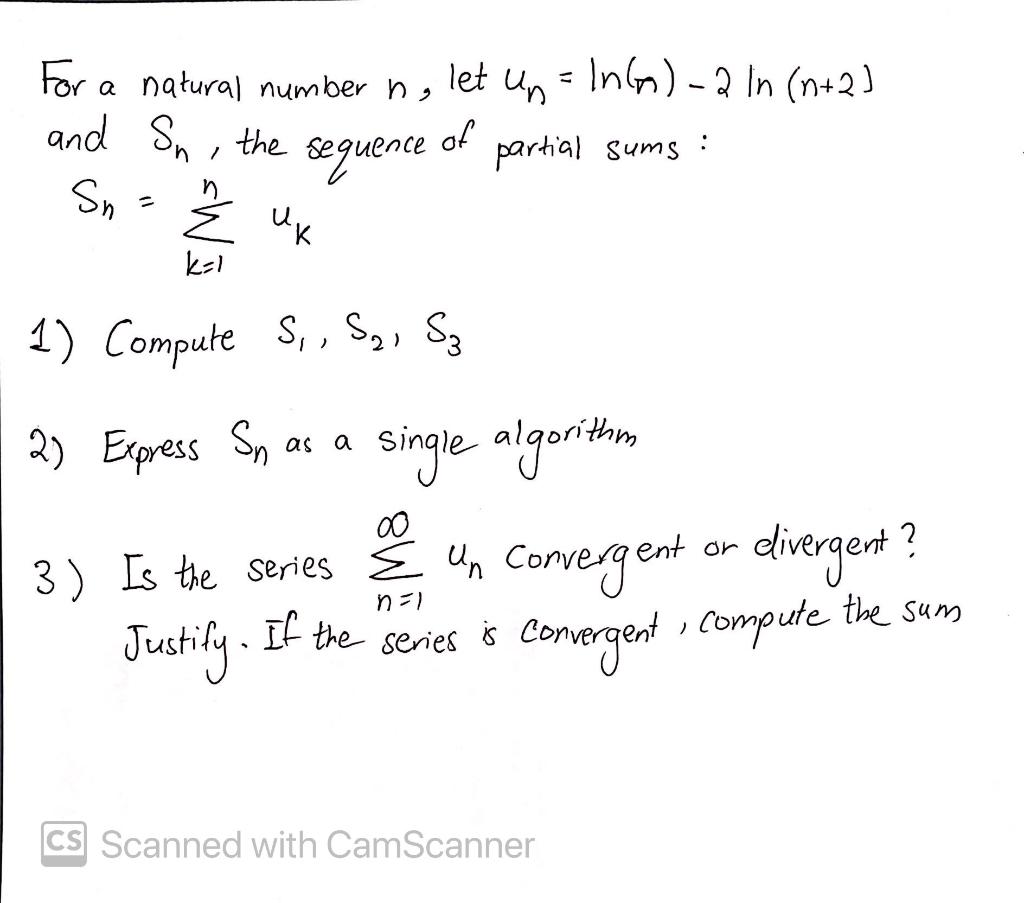 For a natural number n, let uₙ = ln(n) - 2 ln (n+2)
and Sₙ, the sequence of partial sums :
Sₙ = n
Σ uₖ
k=1
1) Compute S₁, S₂, S₃
2) Express Sₙ as a single algorithm
∞
3) Is the series Σ uₙ Convergent or divergent ?
n=1
Justify. If the series is Convergent, compute the sum
CS Scanned with CamScanner